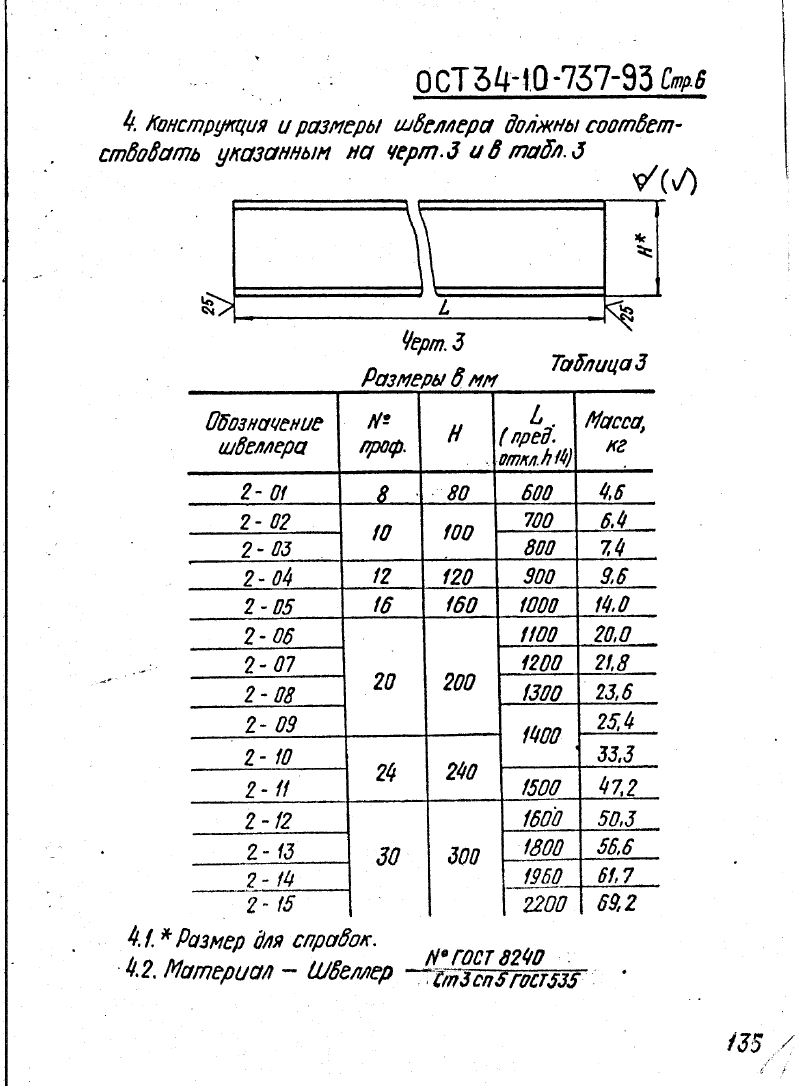 ОСТ 34-10-737-93 Стр.6
4. Конструкция и размеры швеллера должны соответ-
ствовать указанным на черт.3 и в табл.3
(√)
H*
25
L
25
Черт. 3
Таблица 3
Размеры в мм
Обозначение швеллера № проф. H L (пред. откл. h14) Масса, кг
2-01 8 80 600 4,6
2-02 10 100 700 6,4
2-03 800 7,4
2-04 12 120 900 9,6
2-05 16 160 1000 14,0
2-06 20 200 1100 20,0
2-07 1200 21,8
2-08 1300 23,6
2-09 1400 25,4
2-10 24 240 33,3
2-11 1500 47,2
2-12 30 300 1600 50,3
2-13 1800 56,6
2-14 1960 61,7
2-15 2200 69,2
4.1. * Размер для справок.
4.2. Материал — Швеллер № ГОСТ 8240
Ст3сп5 ГОСТ 535
135